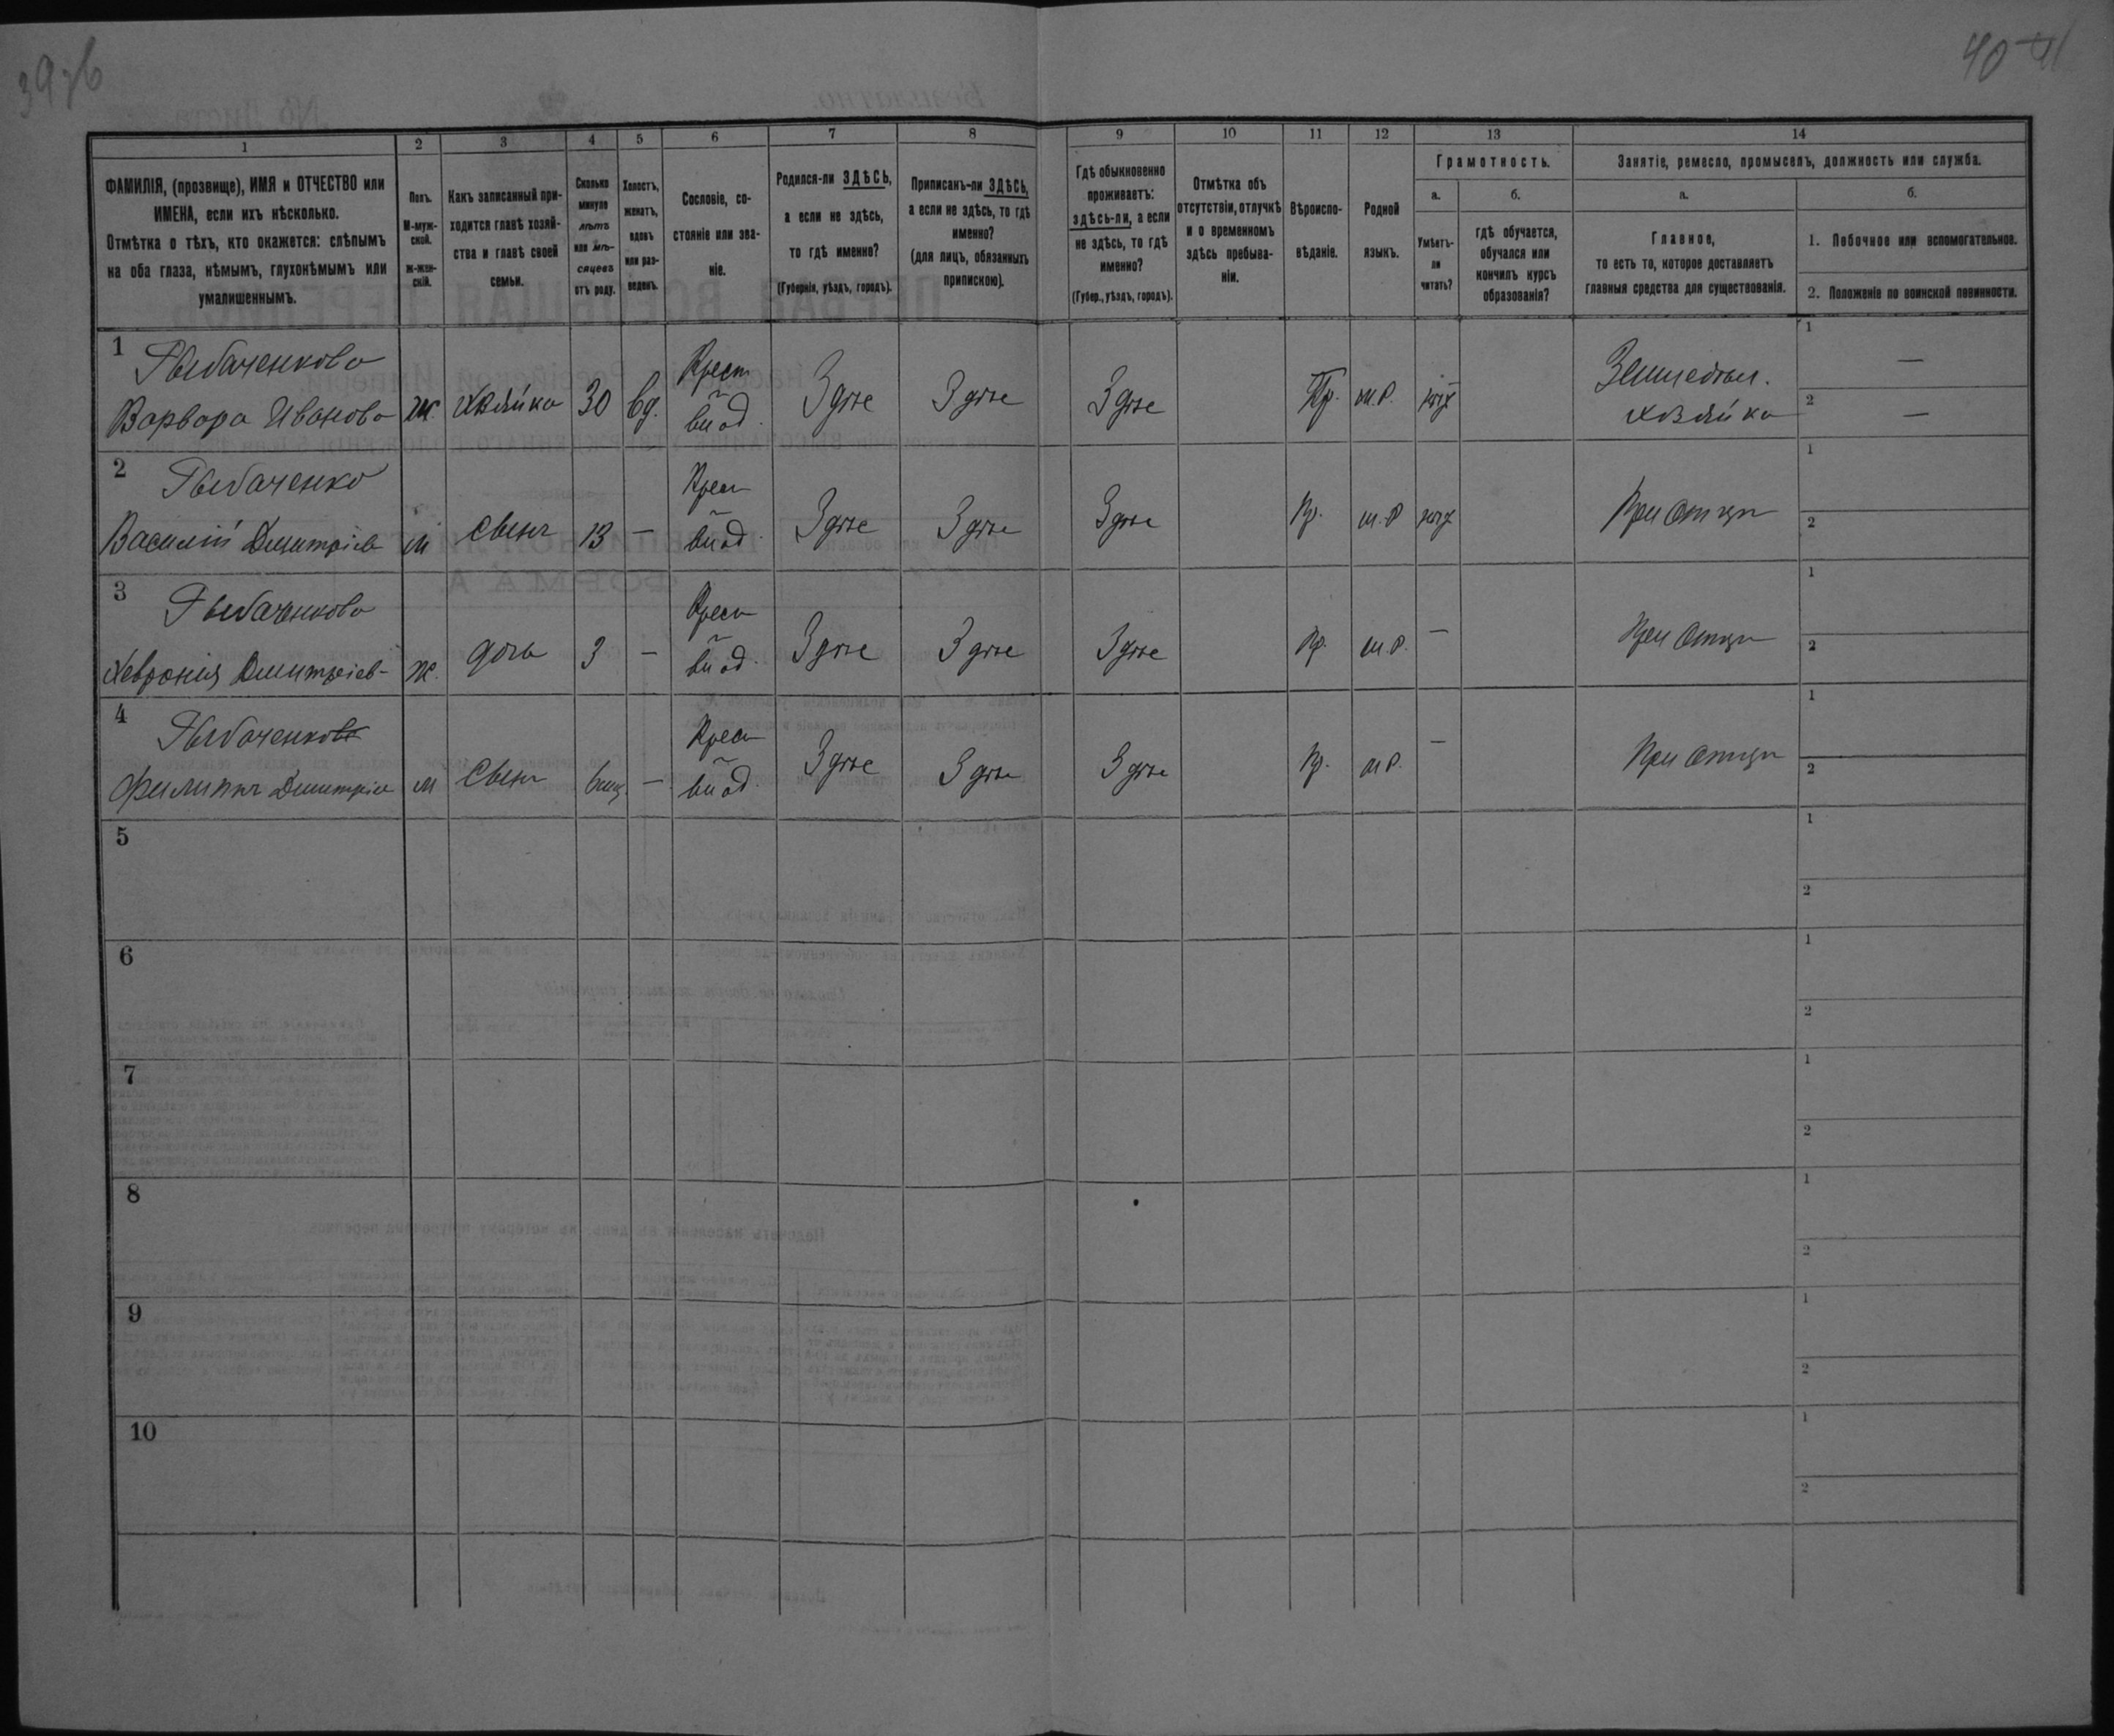 39об
40
41
1
2
3
4
5
6
7
8
9
10
11
12
13
14
ФАМИЛІЯ, (прозвище), ИМЯ и ОТЧЕСТВО или
ИМЕНА, если ихъ нѣсколько.
Отмѣтка о тѣхъ, кто окажется: слѣпымъ
на оба глаза, нѣмымъ, глухонѣмымъ или
умалишеннымъ.
Полъ.
М-муж-
ской.
Ж-жен-
скій.
Какъ записанный при-
ходится главѣ хозяй-
ства и главѣ своей
семьи.
Сколько
минуло
лѣтъ
или мѣ-
сяцевъ
отъ роду.
Холостъ,
женатъ,
вдовъ
или раз-
веденъ.
Сословіе, со-
стояніе или зва-
ніе.
Родился-ли ЗДѢСЬ,
а если не здѣсь,
то гдѣ именно?
(Губернія, уѣздъ, городъ).
Приписанъ-ли ЗДѢСЬ,
а если не здѣсь, то гдѣ
именно?
(для лицъ, обязанныхъ
припискою).
Гдѣ обыкновенно
проживаетъ:
здѣсь-ли, а если
не здѣсь, то гдѣ
именно?
(Губер., уѣздъ, городъ).
Отмѣтка объ
отсутствіи, отлучкѣ
и о временномъ
здѣсь пребыва-
ніи.
Вѣроиспо-
вѣданіе.
Родной
языкъ.
Грамотность.
а.
б.
Умѣетъ-
ли
читать?
гдѣ обучается,
обучался или
кончилъ курсъ
образованія?
Занятіе, ремесло, промыселъ, должность или служба.
а.
б.
Главное,
то есть то, которое доставляетъ
главныя средства для существованія.
1. Побочное или вспомогательное.
2. Положеніе по воинской повинности.
1
Рыбаченкова
Варвара Иванова
ж.
хозяйка
30
вд.
Крест
Здѣсь
Здѣсь
Здѣсь
Пр.
м.р.
Земледѣл.
хозяйка
1 —
2 —
2
Рыбаченко
Василій Дмитріев
м
сынъ
13
—
Крест
Здѣсь
Здѣсь
Здѣсь
Пр.
м.р
При отцѣ
1
2
3
Рыбаченкова
Хеврония Дмитріев-
ж.
дочь
3
—
Крест
Здѣсь
Здѣсь
Здѣсь
Пр.
м.р.
—
При отцѣ
1
2
4
Рыбаченков
Филиппъ Дмитріев
м
Сынъ
—
Крест
Здѣсь
Здѣсь
Здѣсь
Пр.
м р.
—
При отцѣ
1
2
5
1
2
6
1
2
7
1
2
8
1
2
9
1
2
10
1
2